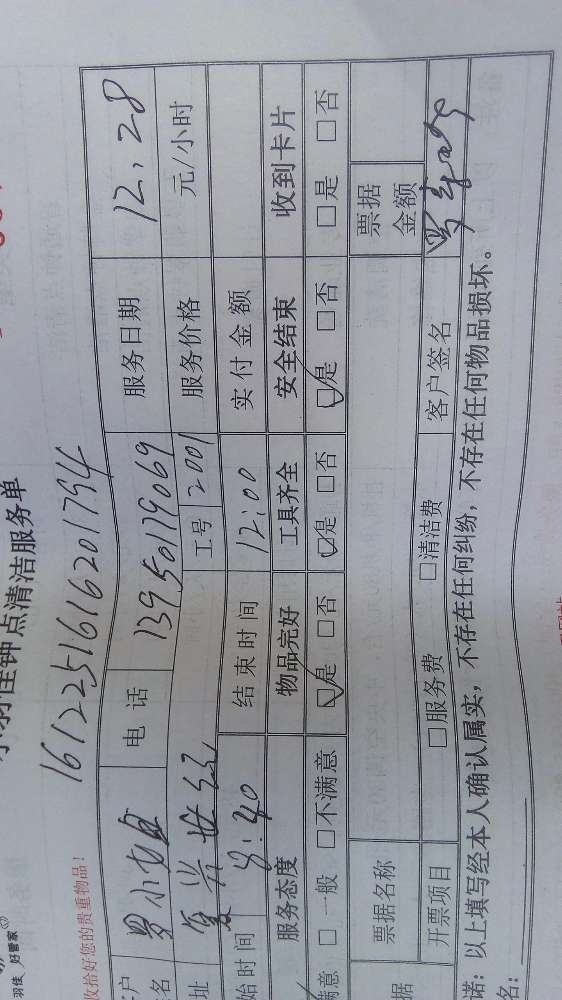 羽佳钟点清洁服务单
羽佳 好管家
1612251616201794
收拾好您的贵重物品!
罗小姐 电话 13950119069 服务日期 12.28
址 工号 2001 服务价格 元/小时
始时间 8:40 结束时间 12:00 实付金额
服务态度 物品完好 工具齐全 安全结束 收到卡片
满意 □ 一般 □不满意 ☑是 □否 ☑是 □否 ☑是 □否 □是 □否
据 票据名称 票据金额
开票项目 □服务费 □清洁费 客户签名
诺:以上填写经本人确认属实,不存在任何纠纷,不存在任何物品损坏。
名: